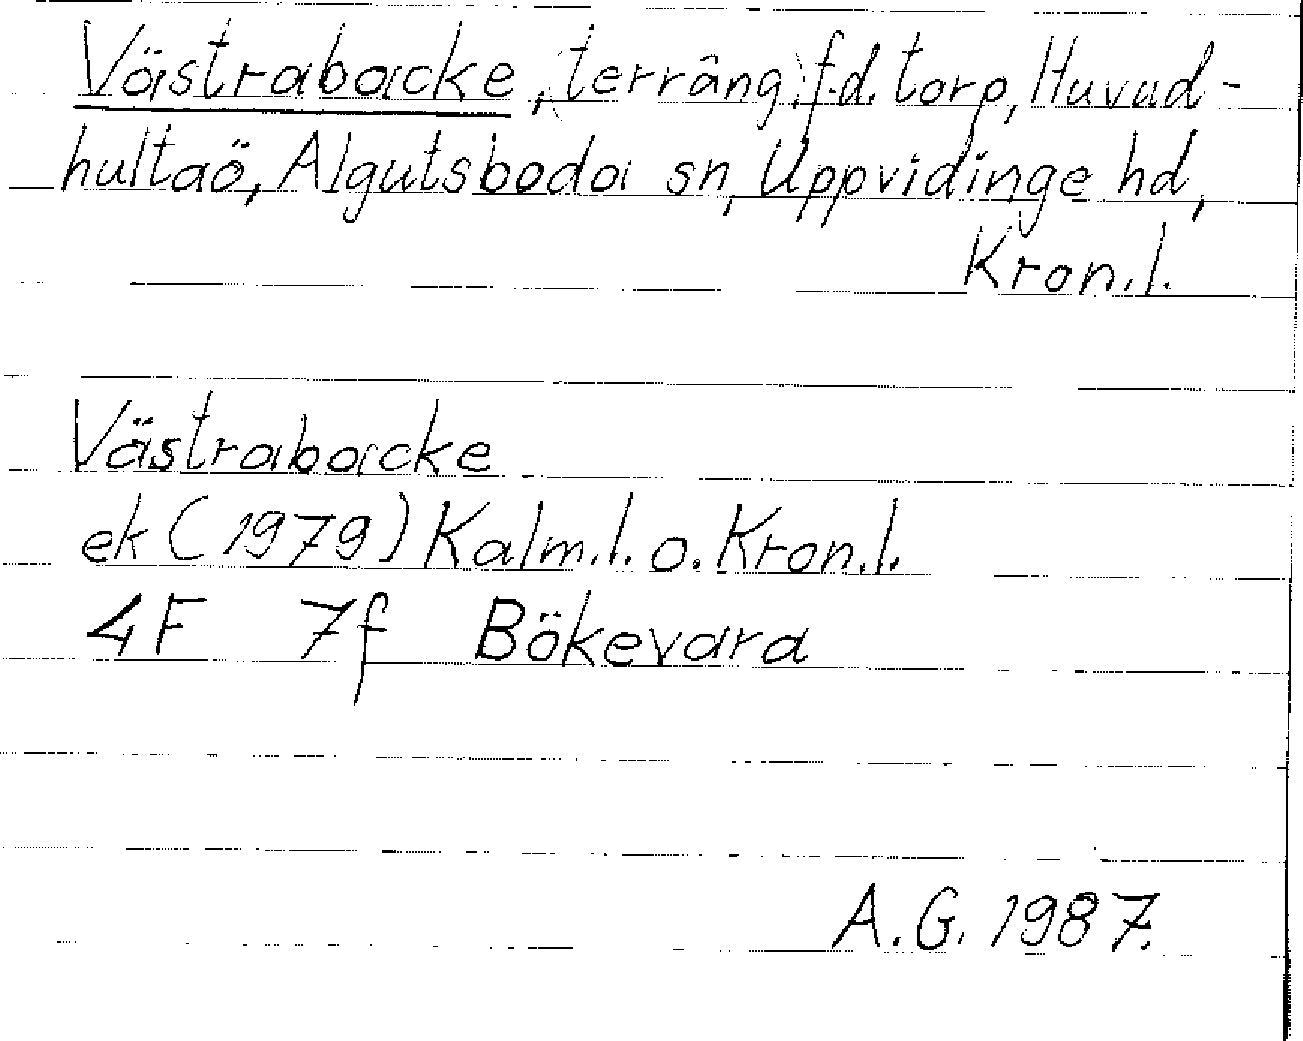 Västrabacke, terräng, f.d. torp, Huvad-
hultaö, Algutsboda sn, Uppvidinge hd,
Kron.l.
Västrabacke
ek (1979) Kalm.l. o. Kron.l.
4F 7f Bökevara
A.G. 1987.